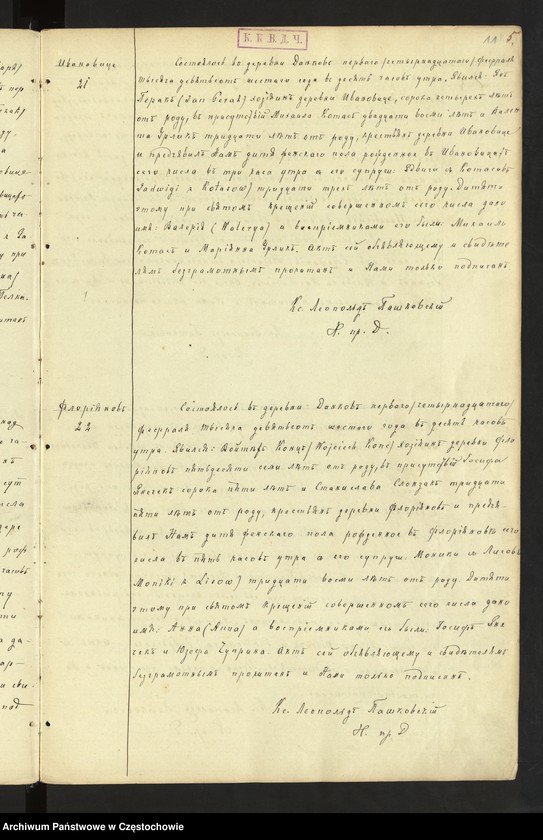 К. К. В. Д. Ч.
11 5.
Ивановице
21
Состоялось въ деревнѣ Данковъ перваго /четырнадцатаго/ Февраля
тысяча девятьсотъ шестаго года въ десять часовъ утра. Явился: Янъ
(Jan Pérak) хозяинъ деревни Ивановице, сорока четырехъ лѣтъ
отъ роду, въ присутствіи Михаила Котася двадцати восьми лѣтъ и
Урликъ тридцати лѣтъ отъ роду, крестьянъ деревни Ивановице
и предъявилъ Намъ дитя женскаго пола рожденное въ Ивановицахъ
сего числа въ три часа утра а его супруги Ядвиги изъ Котасовъ
Jadwigi z Kotasów) тридцати трехъ лѣтъ отъ роду. Дитяти
этому при святомъ крещеніи совершенномъ сего числа дано
имя: Валерія (Walerya) а воспріемниками его были: Михаилъ
Котась и Маріянна Урликъ. Актъ сей объявляющему и свидѣте
лямъ безграмотнымъ прочитанъ и Нами только подписанъ.
Кс. Леопольдъ Пашковскій
Н. пр. Д.
Флоріяновъ
22
Состоялось въ деревнѣ Данковъ перваго /четырнадцатаго/
Февраля тысяча девятьсотъ шестаго года въ десять часовъ
утра. Явился: Войтѣхъ Конць /Wojciech Konc/ хозяинъ деревни Фло
ріяновъ пятьдесяти семи лѣтъ отъ роду, въ присутствіи Іосифа
сорока пяти лѣтъ и Станислава тридцати
пяти лѣтъ отъ роду, крестьянъ деревни Флоріяновъ и предъя-
вилъ Намъ дитя женскаго пола рожденное въ Флоріяновѣ сего
числа въ пять часовъ утра а его супруги Моники изъ Лисовъ
Moniki z Lisów) тридцати восьми лѣтъ отъ роду. Дитяти
этому при святомъ крещеніи совершенномъ сего числа дано
имя: Анна (Anna) а воспріемниками его были: Іосифъ
и Юзефа Чуприна. Актъ сей объявляющему и свидѣтелямъ
безграмотнымъ прочитанъ и Нами только подписанъ.
Кс. Леопольдъ Пашковскій
Н. пр. Д
Archiwum Państwowe w Częstochowie